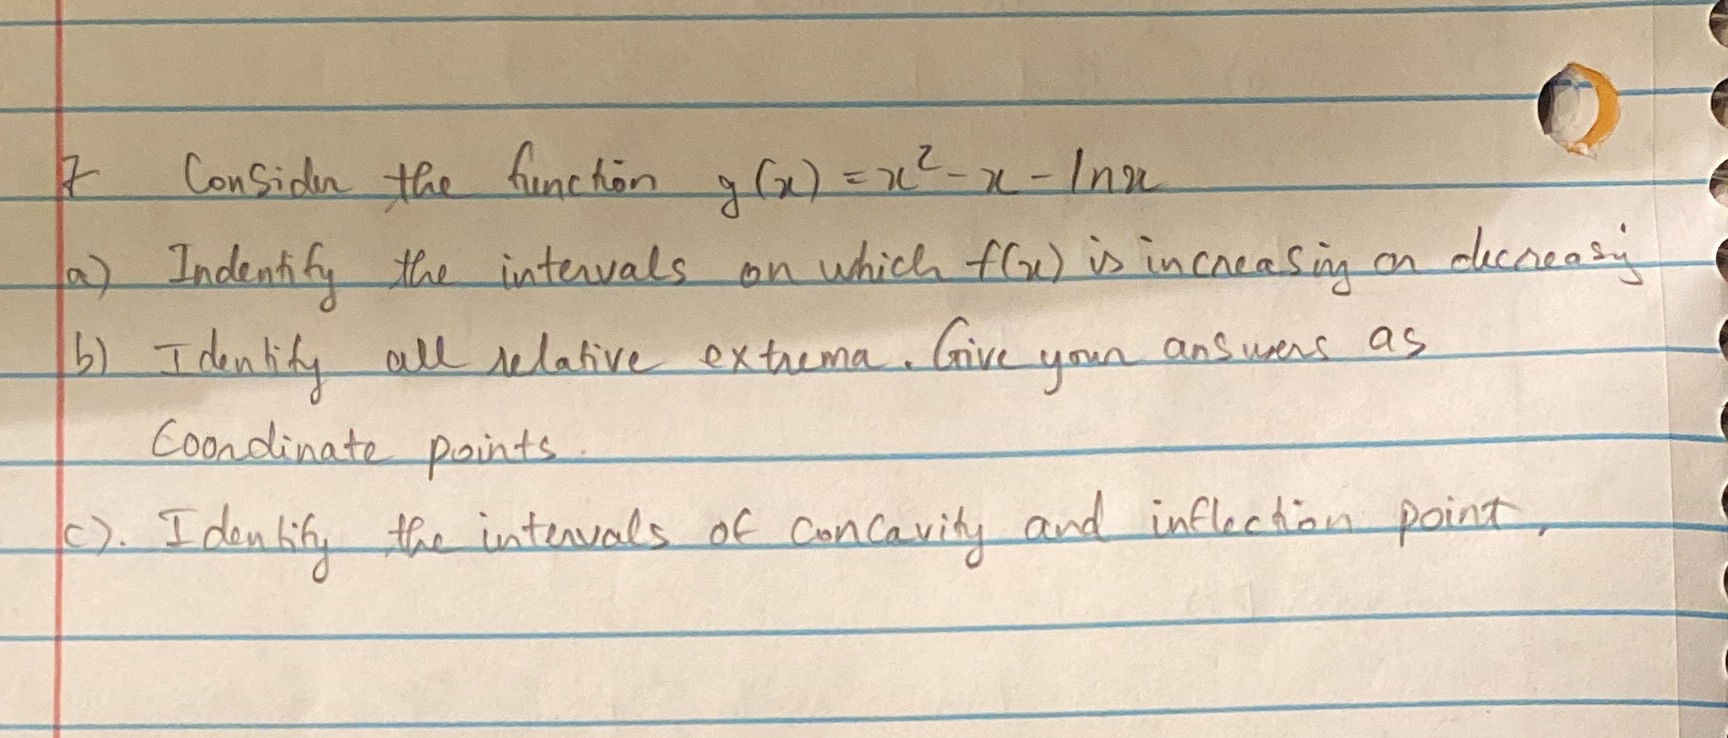 7 Consider the function g(x) = x² - x - lnx
a) Indentify the intervals on which f(x) is increasing or decreasing
b) Identify all relative extrema. Give your answers as
Coordinate points.
c). Identify the intervals of concavity and inflection point,